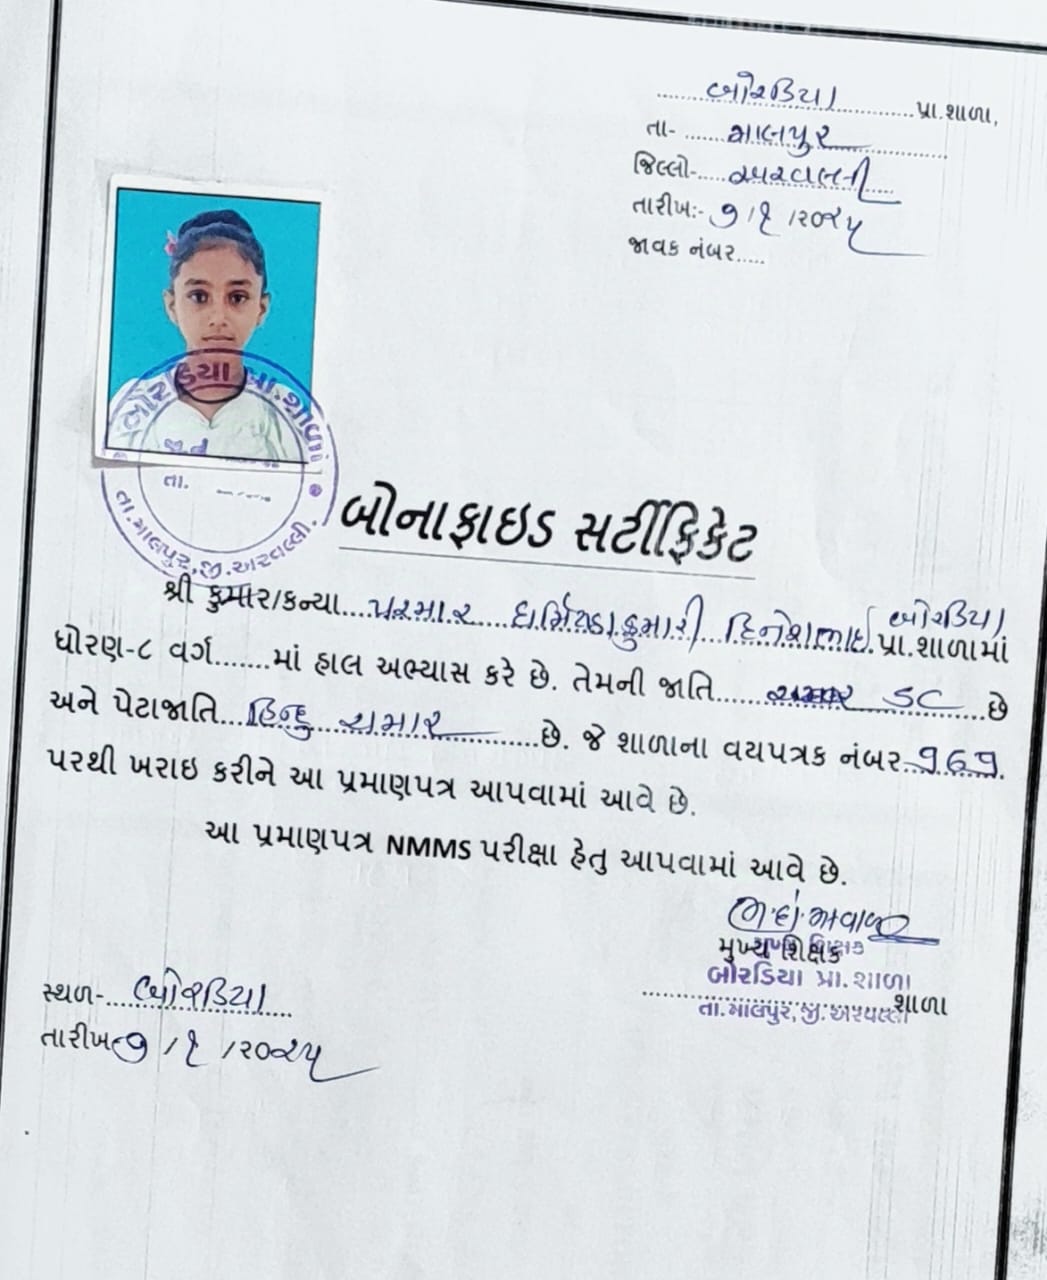 બોરડિયા પ્રા.શાળા,
તા- માલપુર
જિલ્લો- અરવલ્લી
તારીખ:- ૭/૧/૨૦૨૫
જાવક નંબર.....
બોરડિયા પ્રા.શાળા
તા.
તા.માલપુર,જી.અરવલ્લી.
બોનાફાઇડ સર્ટીફિકેટ
શ્રી કુમાર/કન્યા...પરમાર ધર્મિષ્ઠાકુમારી દિનેશભાઇ બોરડિયા પ્રા.શાળામાં
ધોરણ-૮ વર્ગ.......માં હાલ અભ્યાસ કરે છે. તેમની જાતિ....... SC ...છે
અને પેટાજાતિ...હિન્દુ ચમાર......છે. જે શાળાના વયપત્રક નંબર..૧૬૧.
પરથી ખરાઇ કરીને આ પ્રમાણપત્ર આપવામાં આવે છે.
આ પ્રમાણપત્ર NMMS પરીક્ષા હેતુ આપવામાં આવે છે.
મુખ્ય શિક્ષક
બોરડિયા પ્રા.શાળા
શાળા
તા.માલપુર,જી.અરવલ્લી
સ્થળ-....બોરડિયા
તારીખ-૭/૧/૨૦૨૫